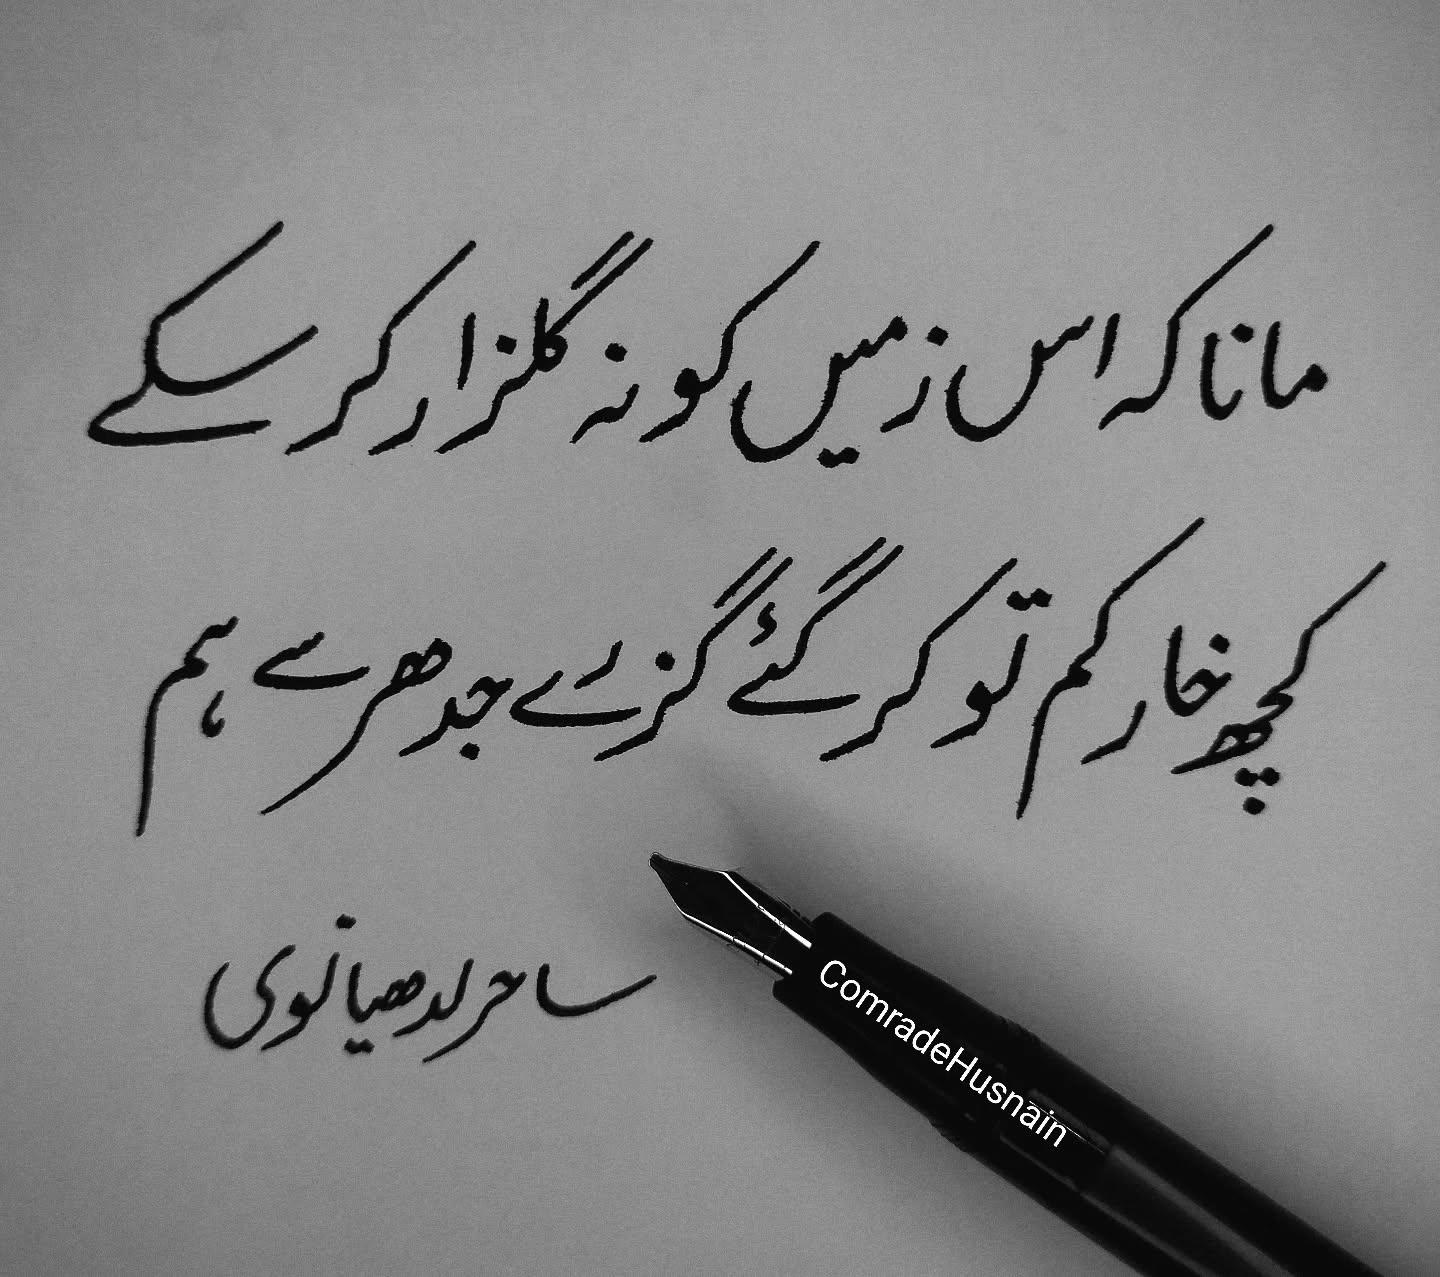 مانا کہ اس زمیں کو نہ گلزار کر سکے
کچھ خار کم تو کر گئے گزرے جدھر سے ہم
ساحر لدھیانوی
ComradeHusnain